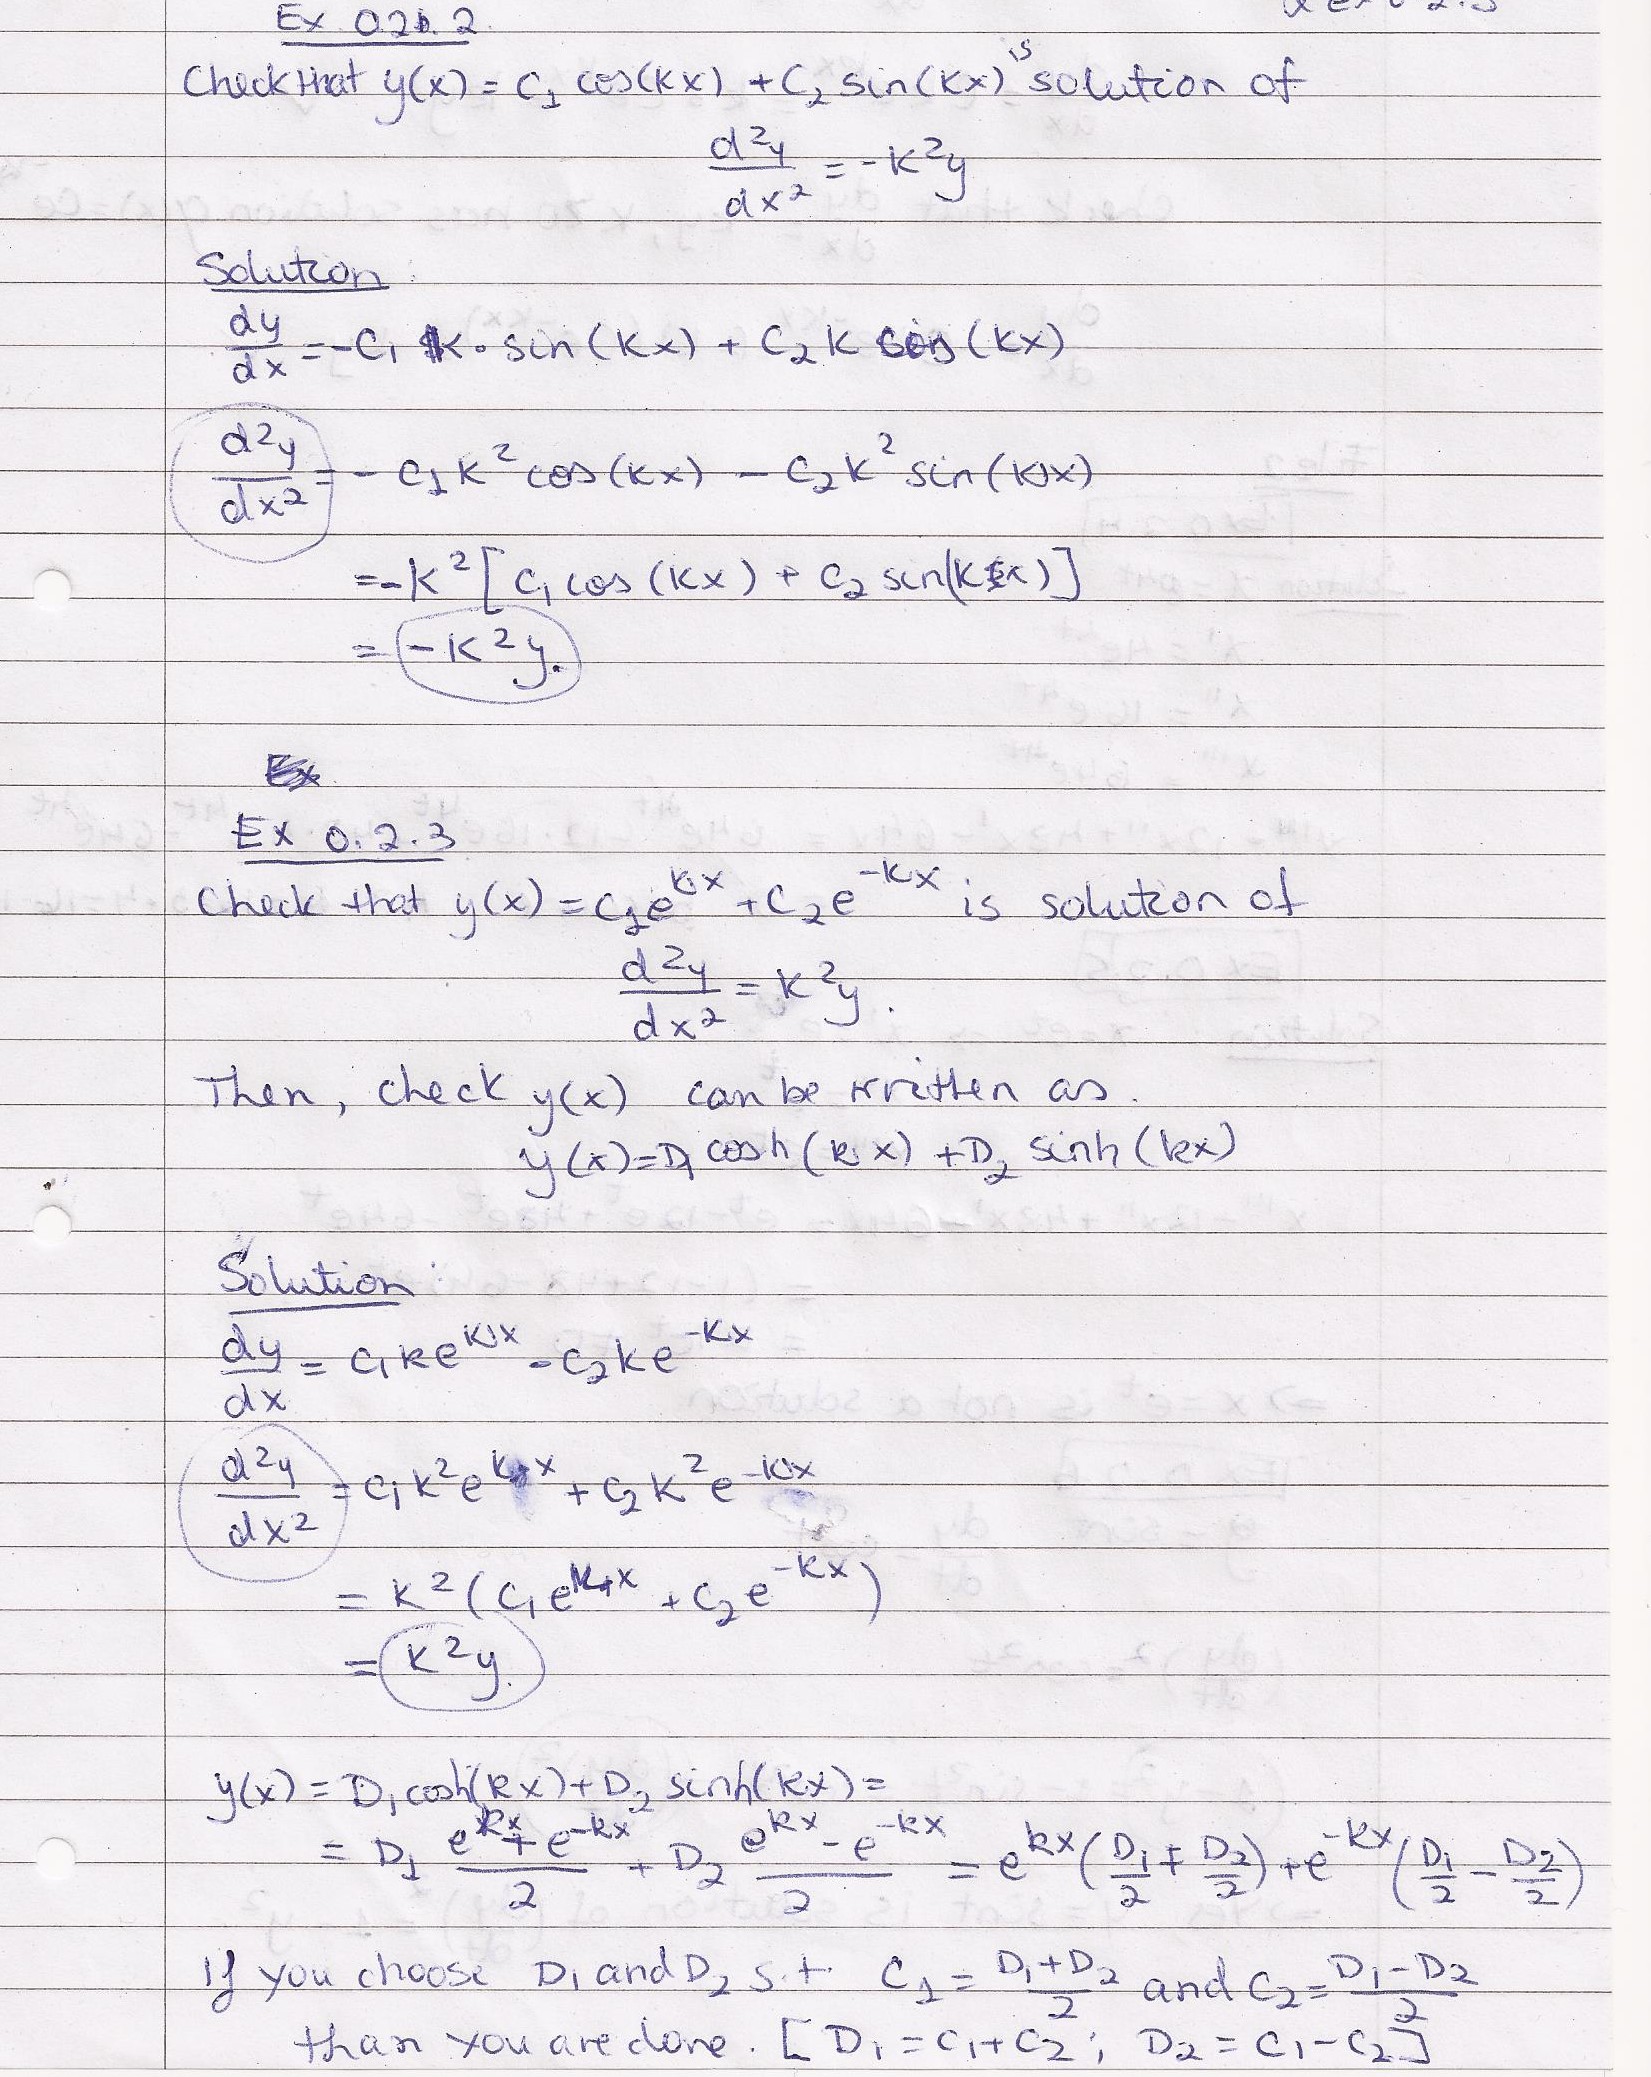 Ex 0.2.2
Check that y(x) = C₁ cos(kx) + C₂ sin(kx) is solution of
d²y/dx² = -k²y
Solution:
dy/dx = -C₁ k · sin(kx) + C₂ k cos(kx)
d²y/dx² = - C₁k² cos(kx) - C₂k² sin(kx)
= -k² [C₁ cos(kx) + C₂ sin(kx)]
= -k²y.
Ex
Ex 0.2.3
Check that y(x) = C₁e^kx + C₂e^-kx is solution of
d²y/dx² = k²y.
Then, check y(x) can be written as.
y(x) = D₁ cosh(kx) + D₂ sinh(kx)
Solution:
dy/dx = C₁ke^kx - C₂ke^-kx
d²y/dx² = C₁k²e^kx + C₂k²e^-kx
= k²(C₁e^kx + C₂e^-kx)
= k²y.
y(x) = D₁cosh(kx) + D₂ sinh(kx) =
= D₁ (e^kx + e^-kx)/2 + D₂ (e^kx - e^-kx)/2 = e^kx(D₁/2 + D₂/2) + e^-kx(D₁/2 - D₂/2)
If you choose D₁ and D₂ s.t. C₁ = (D₁+D₂)/2 and C₂ = (D₁-D₂)/2
than you are done. [D₁ = C₁+C₂; D₂ = C₁-C₂]